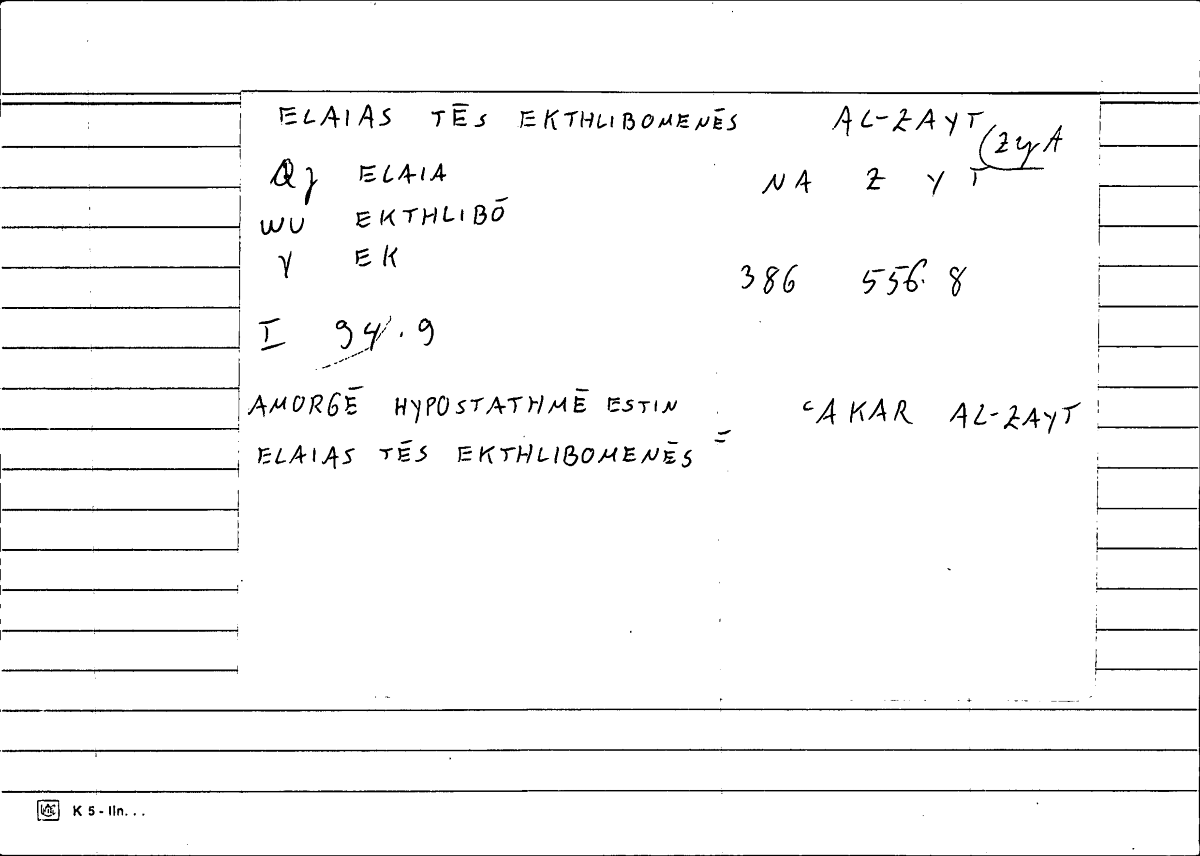 ELAIAS TĒS EKTHLIBOMENĒS AL-ZAYT
(ZYA
Qj ELAIA NA Z Y T
WU EKTHLIBŌ
Y EK
386 556.8
I 94.9
AMORGĒ HYPOSTATHMĒ ESTIN cAKAR AL-ZAYT
ELAIAS TĒS EKTHLIBOMENĒS =
K 5 - lin. . .